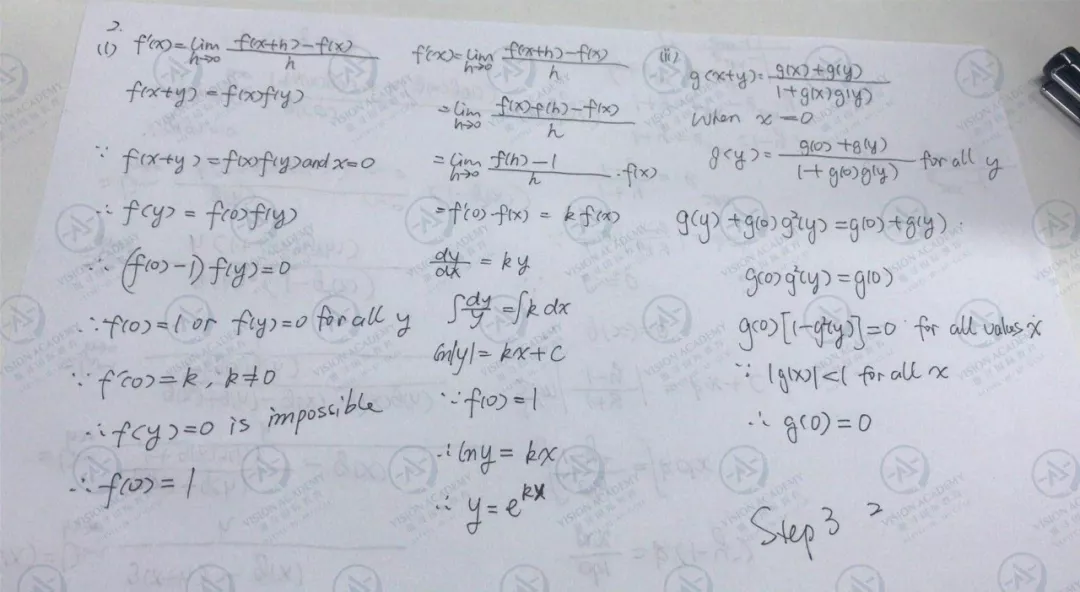 2.
(i) f'(x)=lim h→0 f(x+h)-f(x) / h
f(x+y)=f(x)f(y)
∵ f(x+y)=f(x)f(y) and x=0
∴ f(y)=f(0)f(y)
∴ (f(0)-1)f(y)=0
∴ f(0)=1 or f(y)=0 for all y
∵ f'(0)=k, k≠0
∴ f(y)=0 is impossible
∴ f(0)=1
f'(x)=lim h→0 f(x+h)-f(x) / h
=lim h→0 f(x)f(h)-f(x) / h
=lim h→0 f(h)-1 / h ·f(x)
=f'(0)·f(x)=k·f(x)
dy/dx = ky
∫dy/y=∫k dx
ln|y|=kx+C
∵ f(0)=1
∴ lny=kx
∴ y=e^kx
(ii)
g(x+y)= g(x)+g(y) / 1+g(x)g(y)
when x=0
g(y)= g(0)+g(y) / 1+g(0)g(y) for all y
g(y)+g(0)g²(y)=g(0)+g(y)
g(0)g²(y)=g(0)
g(0)[1-g²(y)]=0 for all values x
∵ |g(x)|<1 for all x
∴ g(0)=0
Step 3 2
VISION ACADEMY